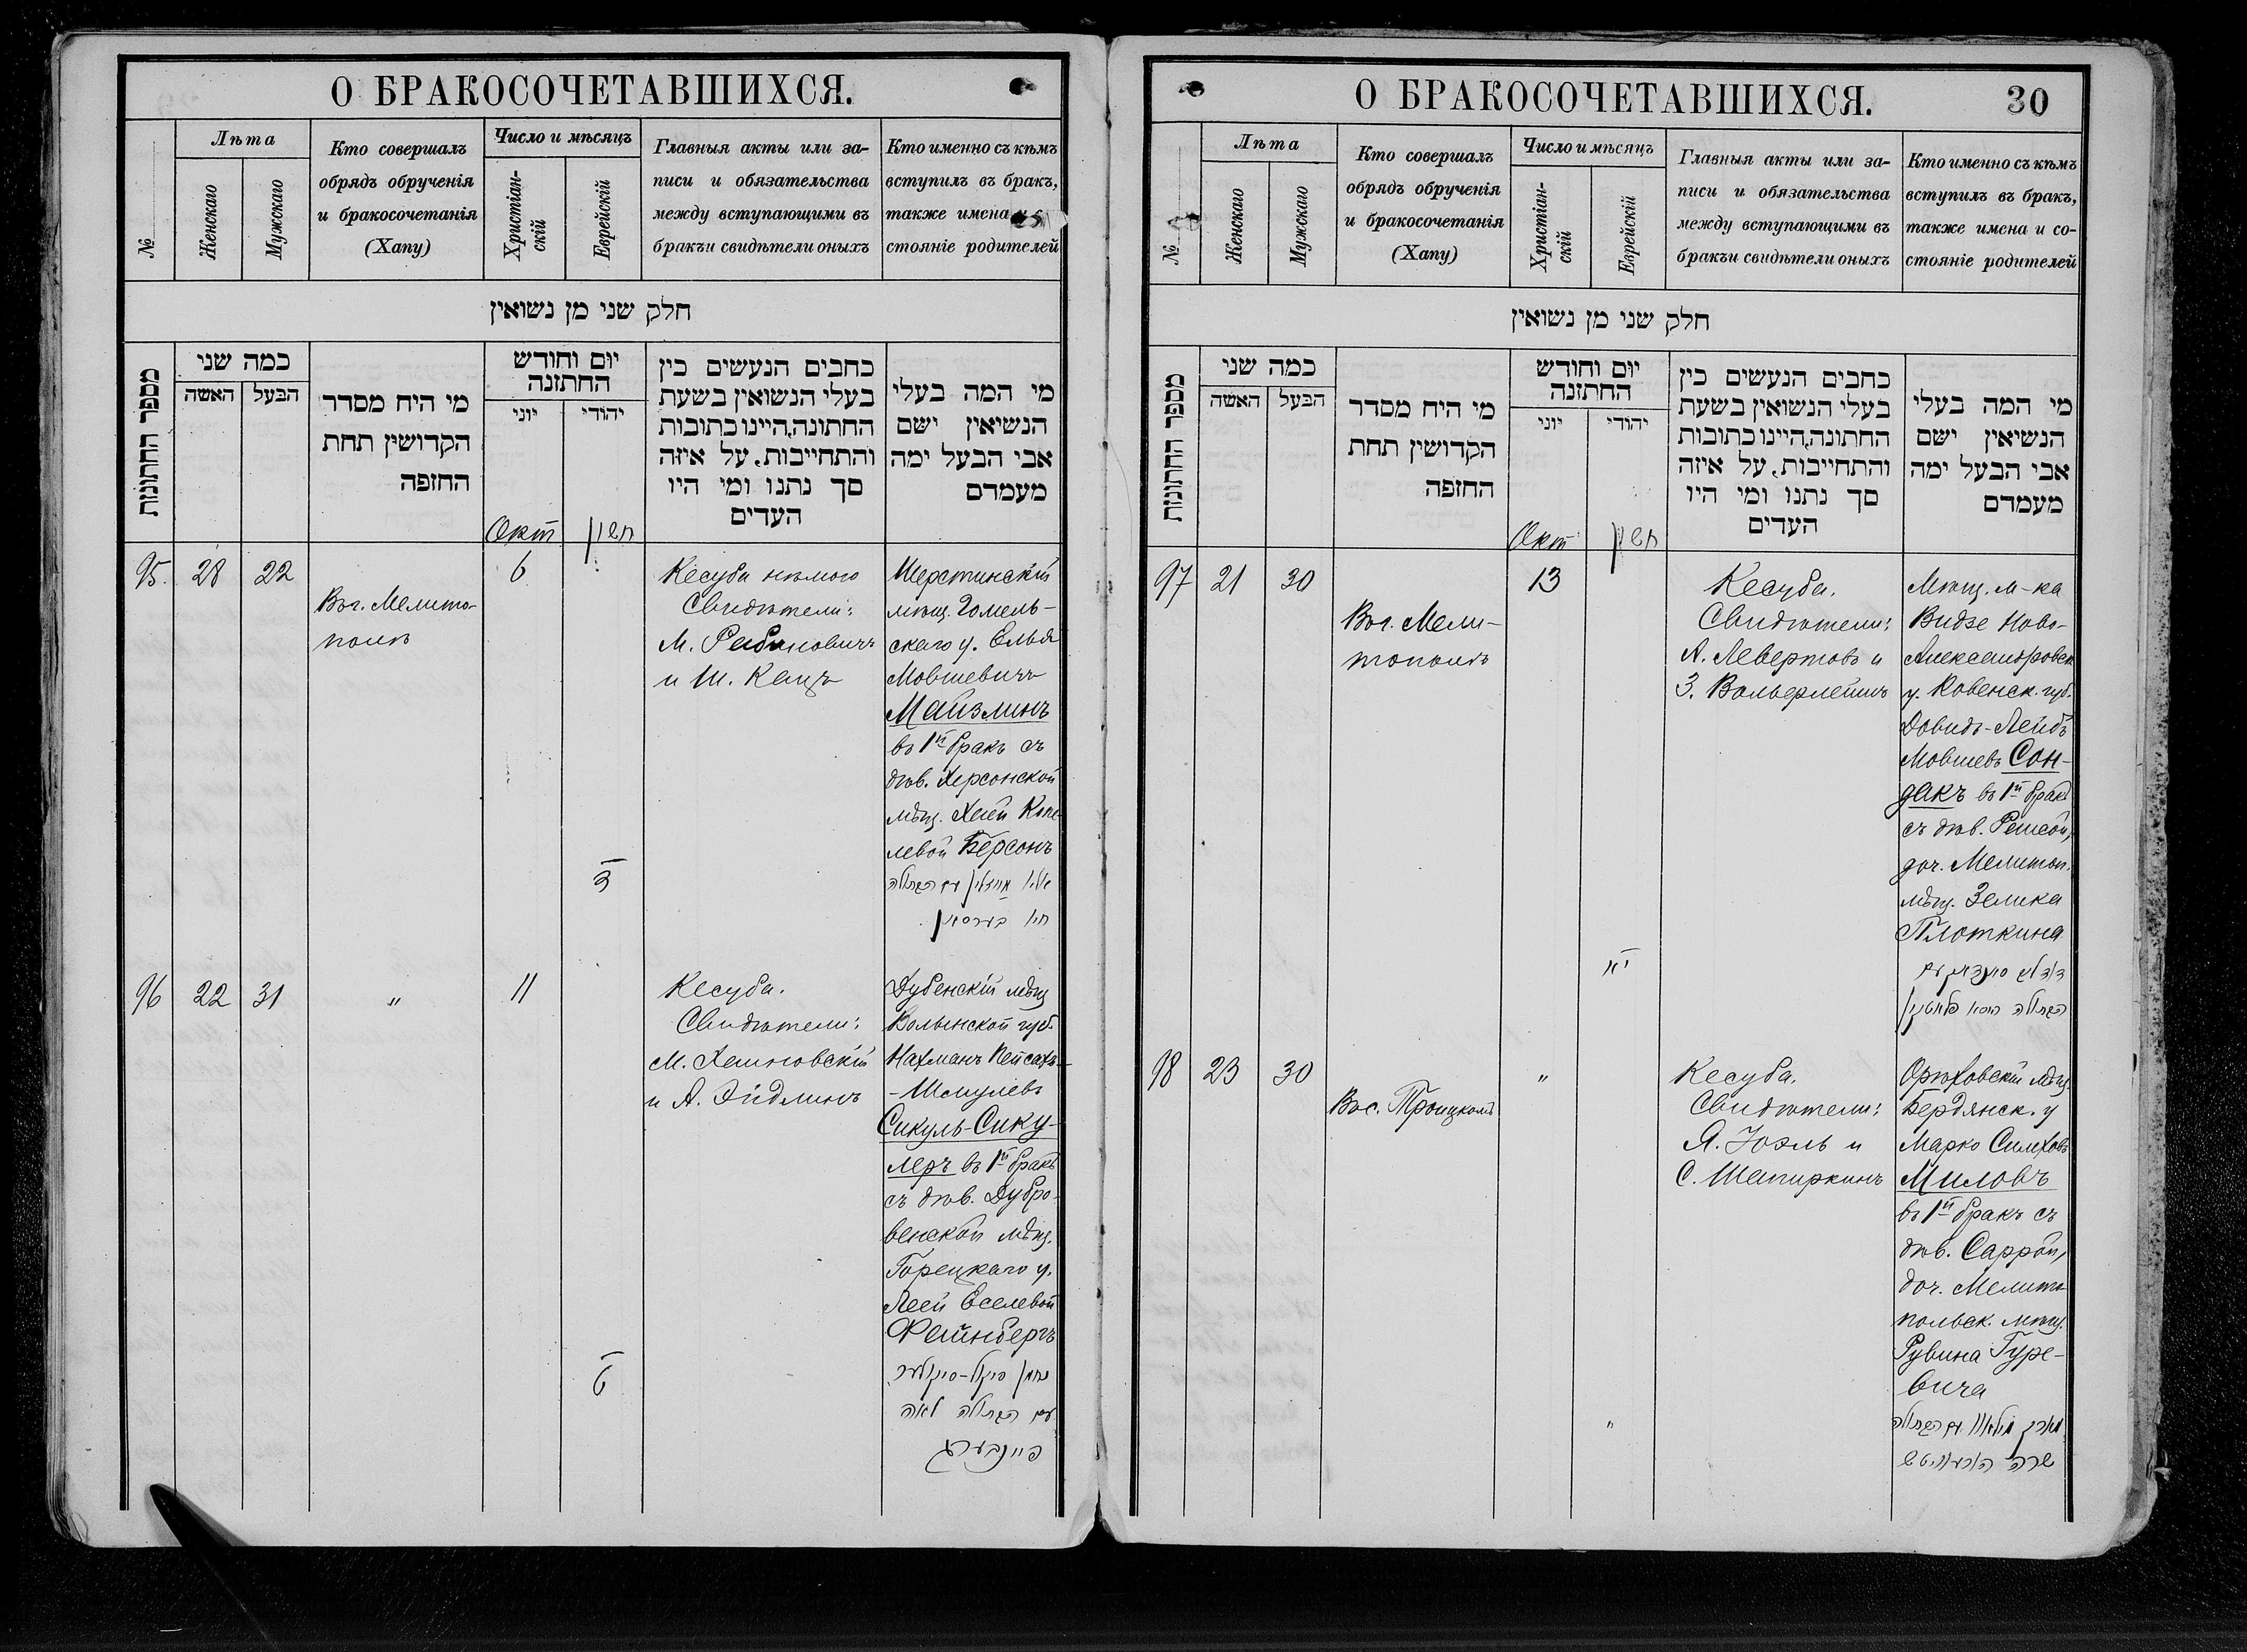 О БРАКОСОЧЕТАВШИХСЯ.
№
Лѣта
Женскаго
Мужскаго
Кто совершалъ
обрядъ обрученія
и бракосочетанія
(Хапу)
Число и мѣсяцъ
Христіан-
скій
Еврейскій
Главныя акты или за-
писи и обязательства
между вступающими въ
бракъи свидѣтели оныхъ
Кто именно съ кѣмъ
вступилъ въ бракъ,
также имена
стояніе родителей
חלק שני מן נשואין
מספר החתונות
כמה שני
האשה
הבעל
מי היח מסדר
הקדושין תחת
החזפה
יום וחודש
החתזנה
יוני
יהודי
כחבים הנעשים כין
בעלי הנשואין בשעת
החתונה,היינו כתובות
והתחייבות, על איזה
סך נתנו ומי היו
העדים
מי המה בעלי
הנשיאין ישם
אבי הבעל ימה
מעמדם
Окт
חשון
95.
28
22
Въ г. Мелито-
полѣ
6
ג
Кесуба
Свидѣтели:
М. Рабиновичъ
и Ш. Кацъ
Шерстинскій
мѣщ. Гомель-
скаго у. Елья
Мовшевичъ
Майзлинъ
въ 1й бракъ съ
дѣв. Херсонской
мѣщ. Хаей Копе-
левой Берсонъ
עם הבתולה
חיה בערסאן
96
22
31
"
11
Кесуба.
Свидѣтели:
М.
и А. Эйдлинъ
Дубенскій мѣщ
Волынской губ.
Нахманъ Пейсахъ-
-Шмулевъ
Сикуль-Сику-
леръ въ 1й бракъ
съ дѣв. Дубро-
венской мѣщ.
Горецкаго у.
Леей Еселевой
Фейнбергъ
נחמן סיקול-סיקולער
עם הבתולה לאה
פיינבערג
О БРАКОСОЧЕТАВШИХСЯ.
30
№
Лѣта
Женскаго
Мужскаго
Кто совершалъ
обрядъ обрученія
и бракосочетанія
(Хапу)
Число и мѣсяцъ
Христіан-
скій
Еврейскій
Главныя акты или за-
писи и обязательства
между вступающими въ
бракъи свидѣтели оныхъ
Кто именно съ кѣмъ
вступилъ въ бракъ,
также имена и со-
стояніе родителей
חלק שני מן נשואין
מספר החתונות
כמה שני
האשה
הבעל
מי היח מסדר
הקדושין תחת
החזפה
יום וחודש
החתזנה
יוני
יהודי
כחבים הנעשים כין
בעלי הנשואין בשעת
החתונה,היינו כתובות
והתחייבות, על איזה
סך נתנו ומי היו
העדים
מי המה בעלי
הנשיאין ישם
אבי הבעל ימה
מעמדם
Окт
חשון
97
21
30
Въ г. Мели-
тополѣ
13
יא
Кесуба.
Свидѣтели:
А. Левертовъ и
З.
Мѣщ. м-ка
Видзе Ново-
Александровск
у. Ковенск. губ.
Довидъ-Лейбъ
Мовшевъ Сон-
дакъ въ 1й бракъ
съ дѣв. Решей,
доч. Мелитоп.
мѣщ. Зелика
Плоткина
עם
הבתולה פלוטקין
98
23
30
Въ с. Троицкомъ
"
"
Кесуба.
Свидѣтели:
Я. Іоэль и
С. Шапиркинъ
Орѣховскій мѣщ.
Бердянск. у
Марко Симховъ
Миловъ
въ 1й бракъ съ
дѣв. Саррой,
доч. Мелито-
польск. мѣщ.
Рувина Гуре-
вича
עם הבתולה
שרה